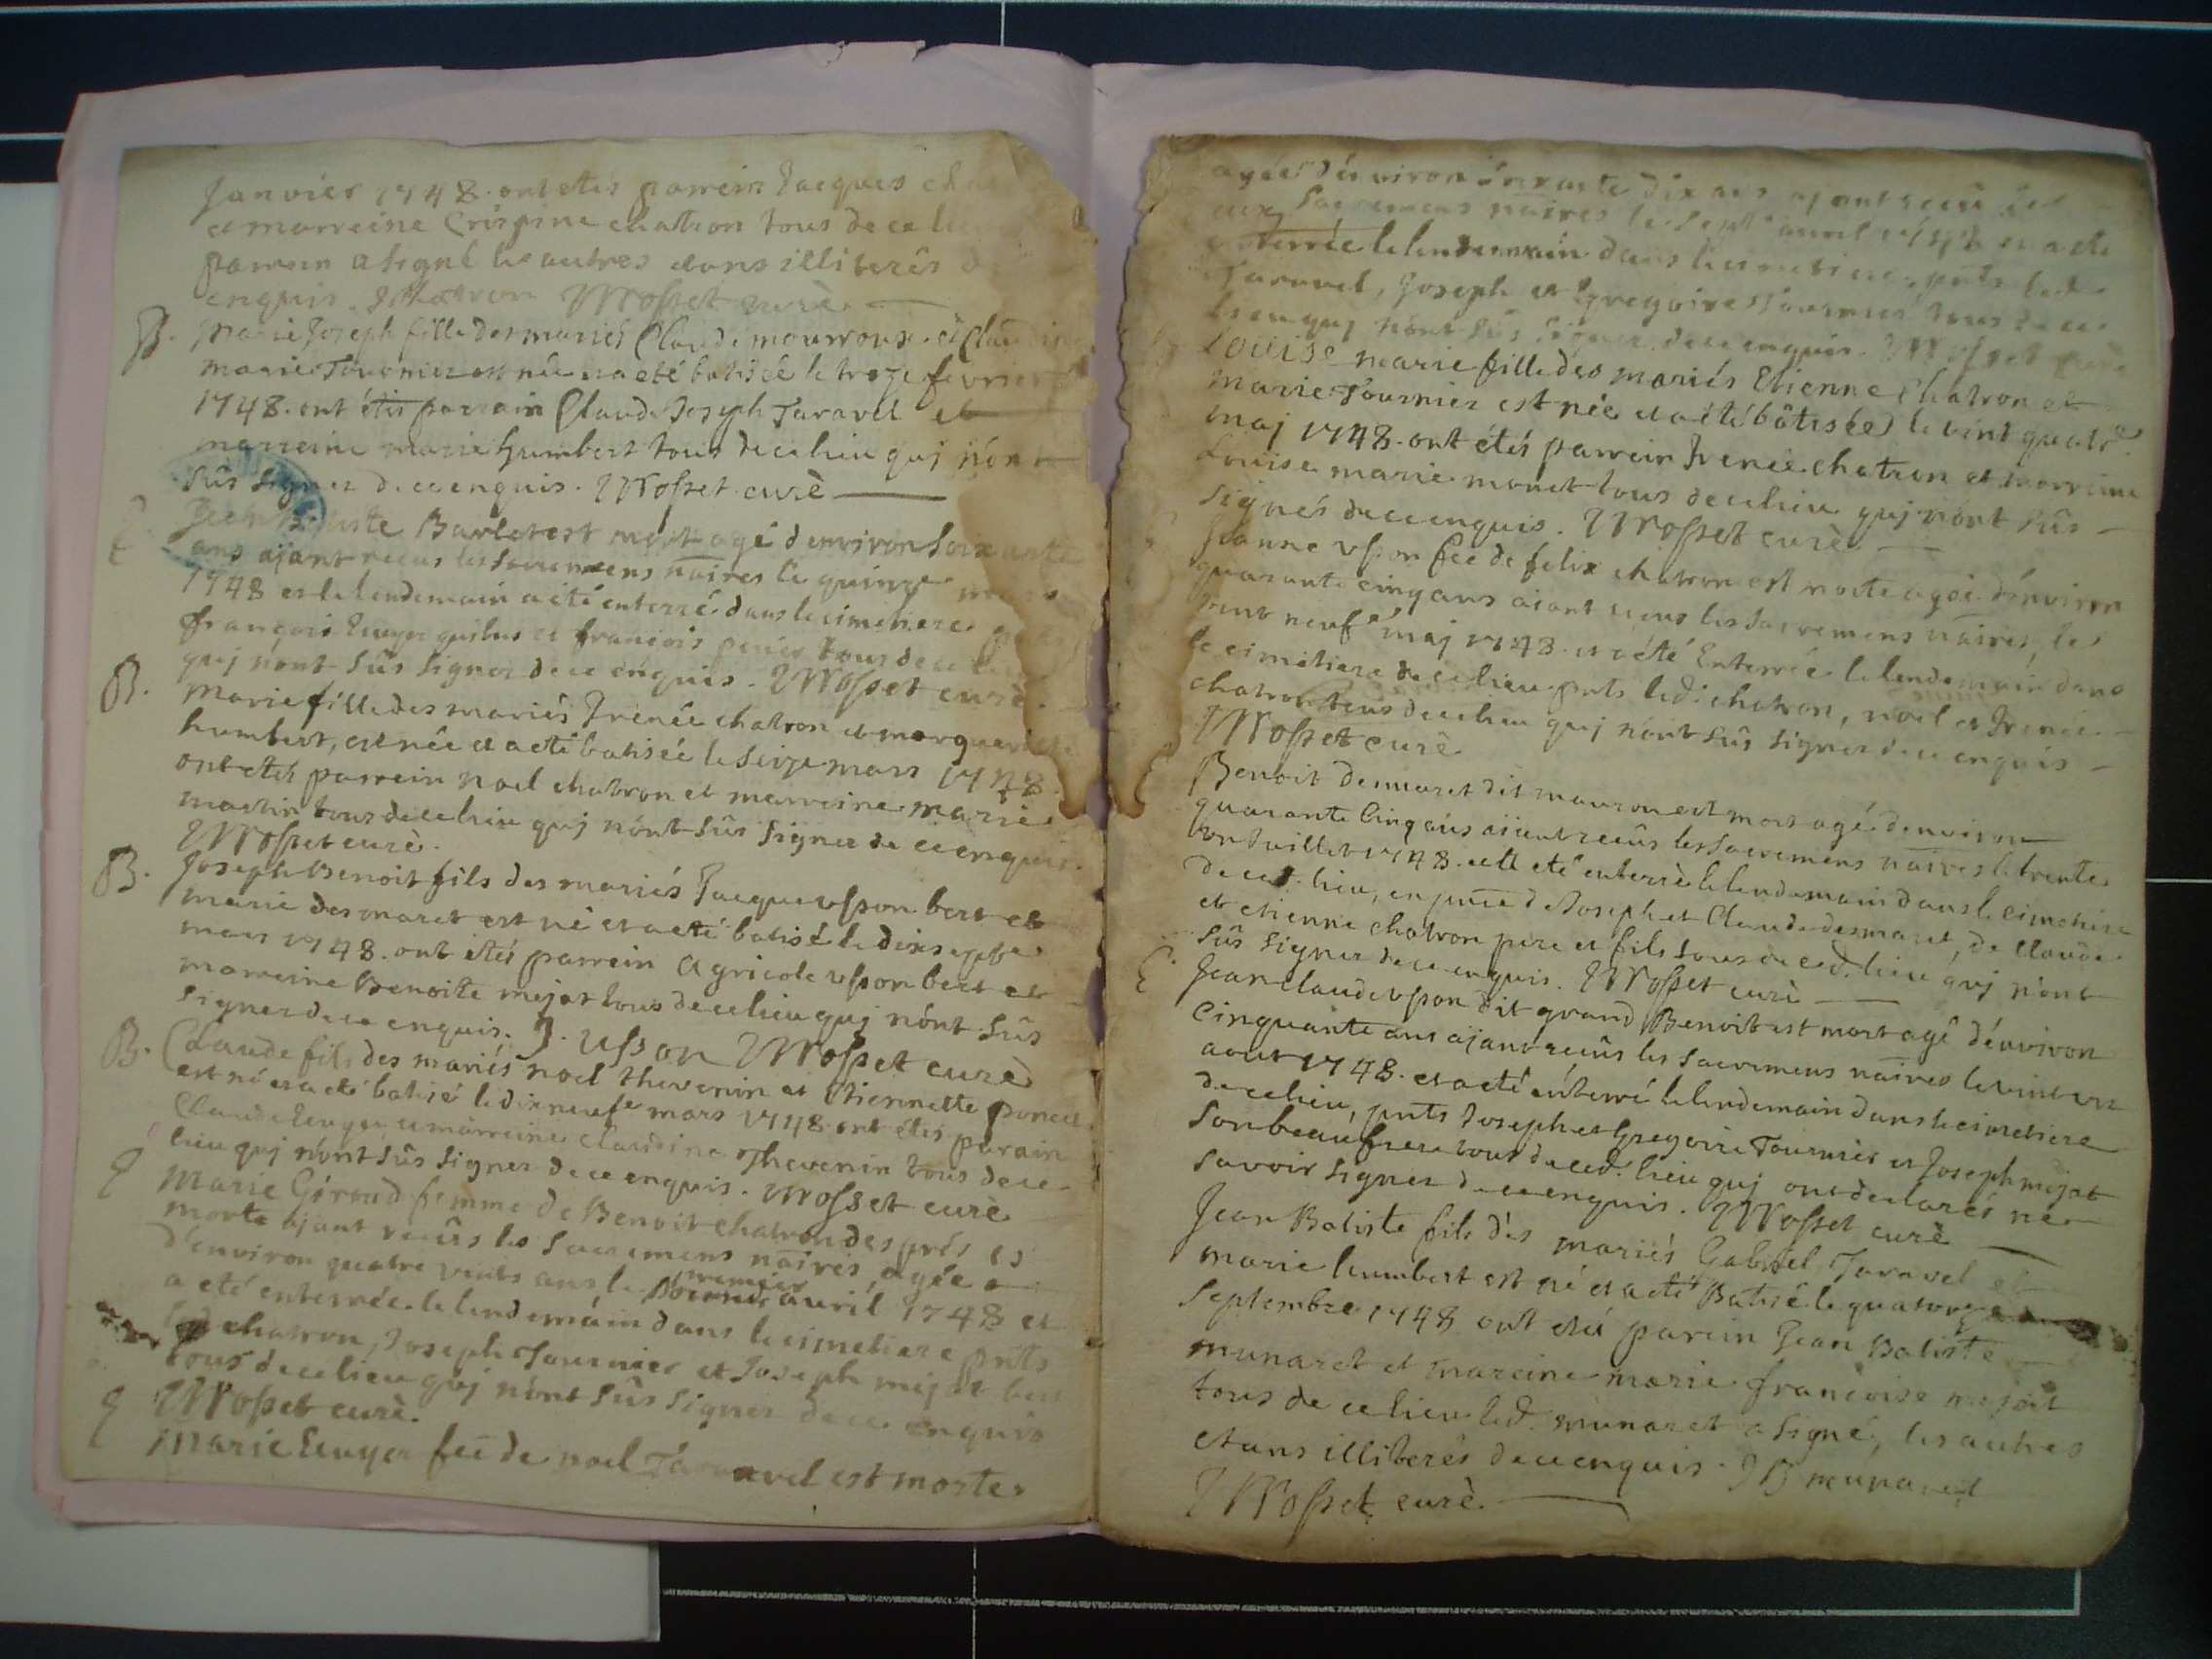 Janvier 1748. ont etés parrein Jacques
et marreine Crispine chatron tous de ce
parrein a signé les autres etans illiterés
enquis. Mosset curè
B. Marie Joseph fille des mariés Claude mourroux et
marie Tournier est née et a eté batisée le treze fevrier
1748. ont étés parrain Claude Joseph Taravel et
marreine marie humbert tous de ce lieu quj n'ont
sûs signer de ce enquis. Mosset curè
E. Barlet est mort agé d'environ soixante
ans ajant recus les sacremens naires le quinze
1748 et le lendemain a eté enterré dans le cimetiere
françois tous de ce
quj n'ont sûs signer de ce enquis. Mosset curè
B. Marie fille des mariés Irenée chatron et marguerite
humbert, est née et a eté batisée le seize mars 1748
ont etés parrein noel chatron et marreine marie
martin tous de ce lieu quj n'ont sûs signer de ce enquis.
Mosset curè.
B. Joseph Benoit fils des mariés Jacque usson bert et
marie desmaret est né et a eté batisé le dixsept
mars 1748. ont étés parrein agricole usson bert et
marreine Benoite mejat tous de ce lieu quj n'ont sûs
signer de ce enquis. J. usson Mosset curè
B. Claude fils des mariés noel thevenin et Etiennette poncet
est né et a eté batisé le dixneufe mars 1748 ont étés parain
Claude Ecuyer et marreine Claudine Thevenin tous de ce
lieu quj n'ont sûs signer de ce enquis. Mosset curè
E Marie Giroud femme de Benoit chatron des prés est
morte ajant recûs les sacremens naires, agée
d'environ quatre vints ans, le premier avril 1748 et
a eté enterrée le lendemain dans le cimetiere pnts
led chatron, Joseph Tournier et Joseph mejat
tous de ce lieu quj n'ont sûs signer de ce enquis
Mosset curè.
E Marie Ecuyer fee de noel Taravel est morte
agée d'environ soixante dix ans ajant recû les
sacremens naires le sept avril 1748 et a eté
enterrée le lendemain dans le cimetiere, pnts led
Taravel, Joseph et Gregoire Tournier tous de ce
lieu quj n'ont sûs signer de ce enquis. Mosset curè
Louise marie fille des mariés Etienne Chatron et
marie Tournier est née et a été bâtisée le vint quatre
maj 1748. ont étés parrein Irenée chatron et marreine
Louise marie monet tous de ce lieu quj n'ont sûs
signés de ce enquis. Mosset curè
Jeanne usson fee de felix chatron est morte agée d'environ
quarante cinq ans aiant recus les sacremens naires, le
vint neufe maj 1748. et a été Enterrée le lendemain dans
le cimetiere de ce lieu pnts led. chatron, noel et Irenée
chatron tous de ce lieu quj n'ont sûs signer de ce enquis
Mosset curè
Benoit desmaret dit mauron est mort agé d'environ
quarante Cinq ans aiant recûs les sacremens naires le trente
un Juillet 1748. et a eté enterrè le lendemain dans le cimetiere
de ced. lieu, en pnce de Joseph et Claude desmaret, de Claude
et etienne chatron pere et fils tous de ced. lieu quj n'ont
sûs signer de ce enquis. Mosset curè
E. Jean claude usson dit grand Benoit est mort agé d'environ
Cinquante ans ajant recûs les sacremens naires le vint un
aout 1748. et a eté enterré le lendemain dans le cimetiere
de ce lieu, pnts Joseph et Gregoire Tournier et Joseph mejat
son beaufrere tous de ced. lieu quj ont declarés ne
savoir signer de ce enquis. Mosset curè
Jean Batiste fils dès mariés Gabriel Taravel et
marie humbert est né et a eté Batisé le quatorze
Septembre 1748 ont eté parein Jean Batiste
munaret et mareine marie francoise mejat
tous de ce lieu led. munaret a signé, les autres
etans illiterés de ce enquis. JB munaret
Mosset curè.